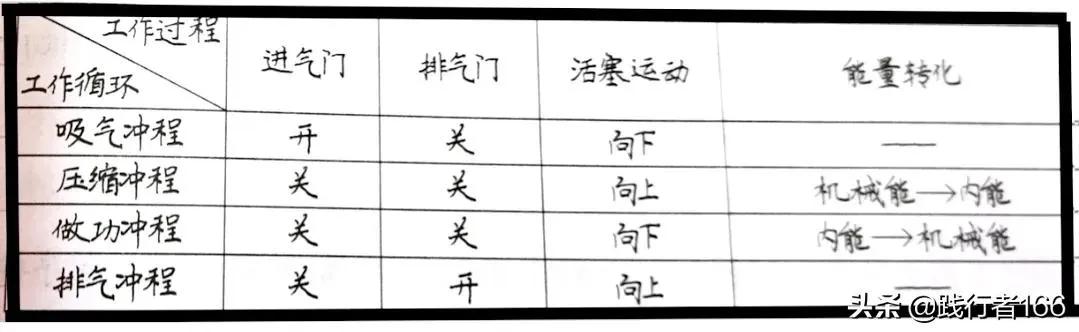 工作过程
工作循环 进气门 排气门 活塞运动 能量转化
吸气冲程 开 关 向下 ——
压缩冲程 关 关 向上 机械能→内能
做功冲程 关 关 向下 内能→机械能
排气冲程 关 开 向上 ——
头条 @践行者166